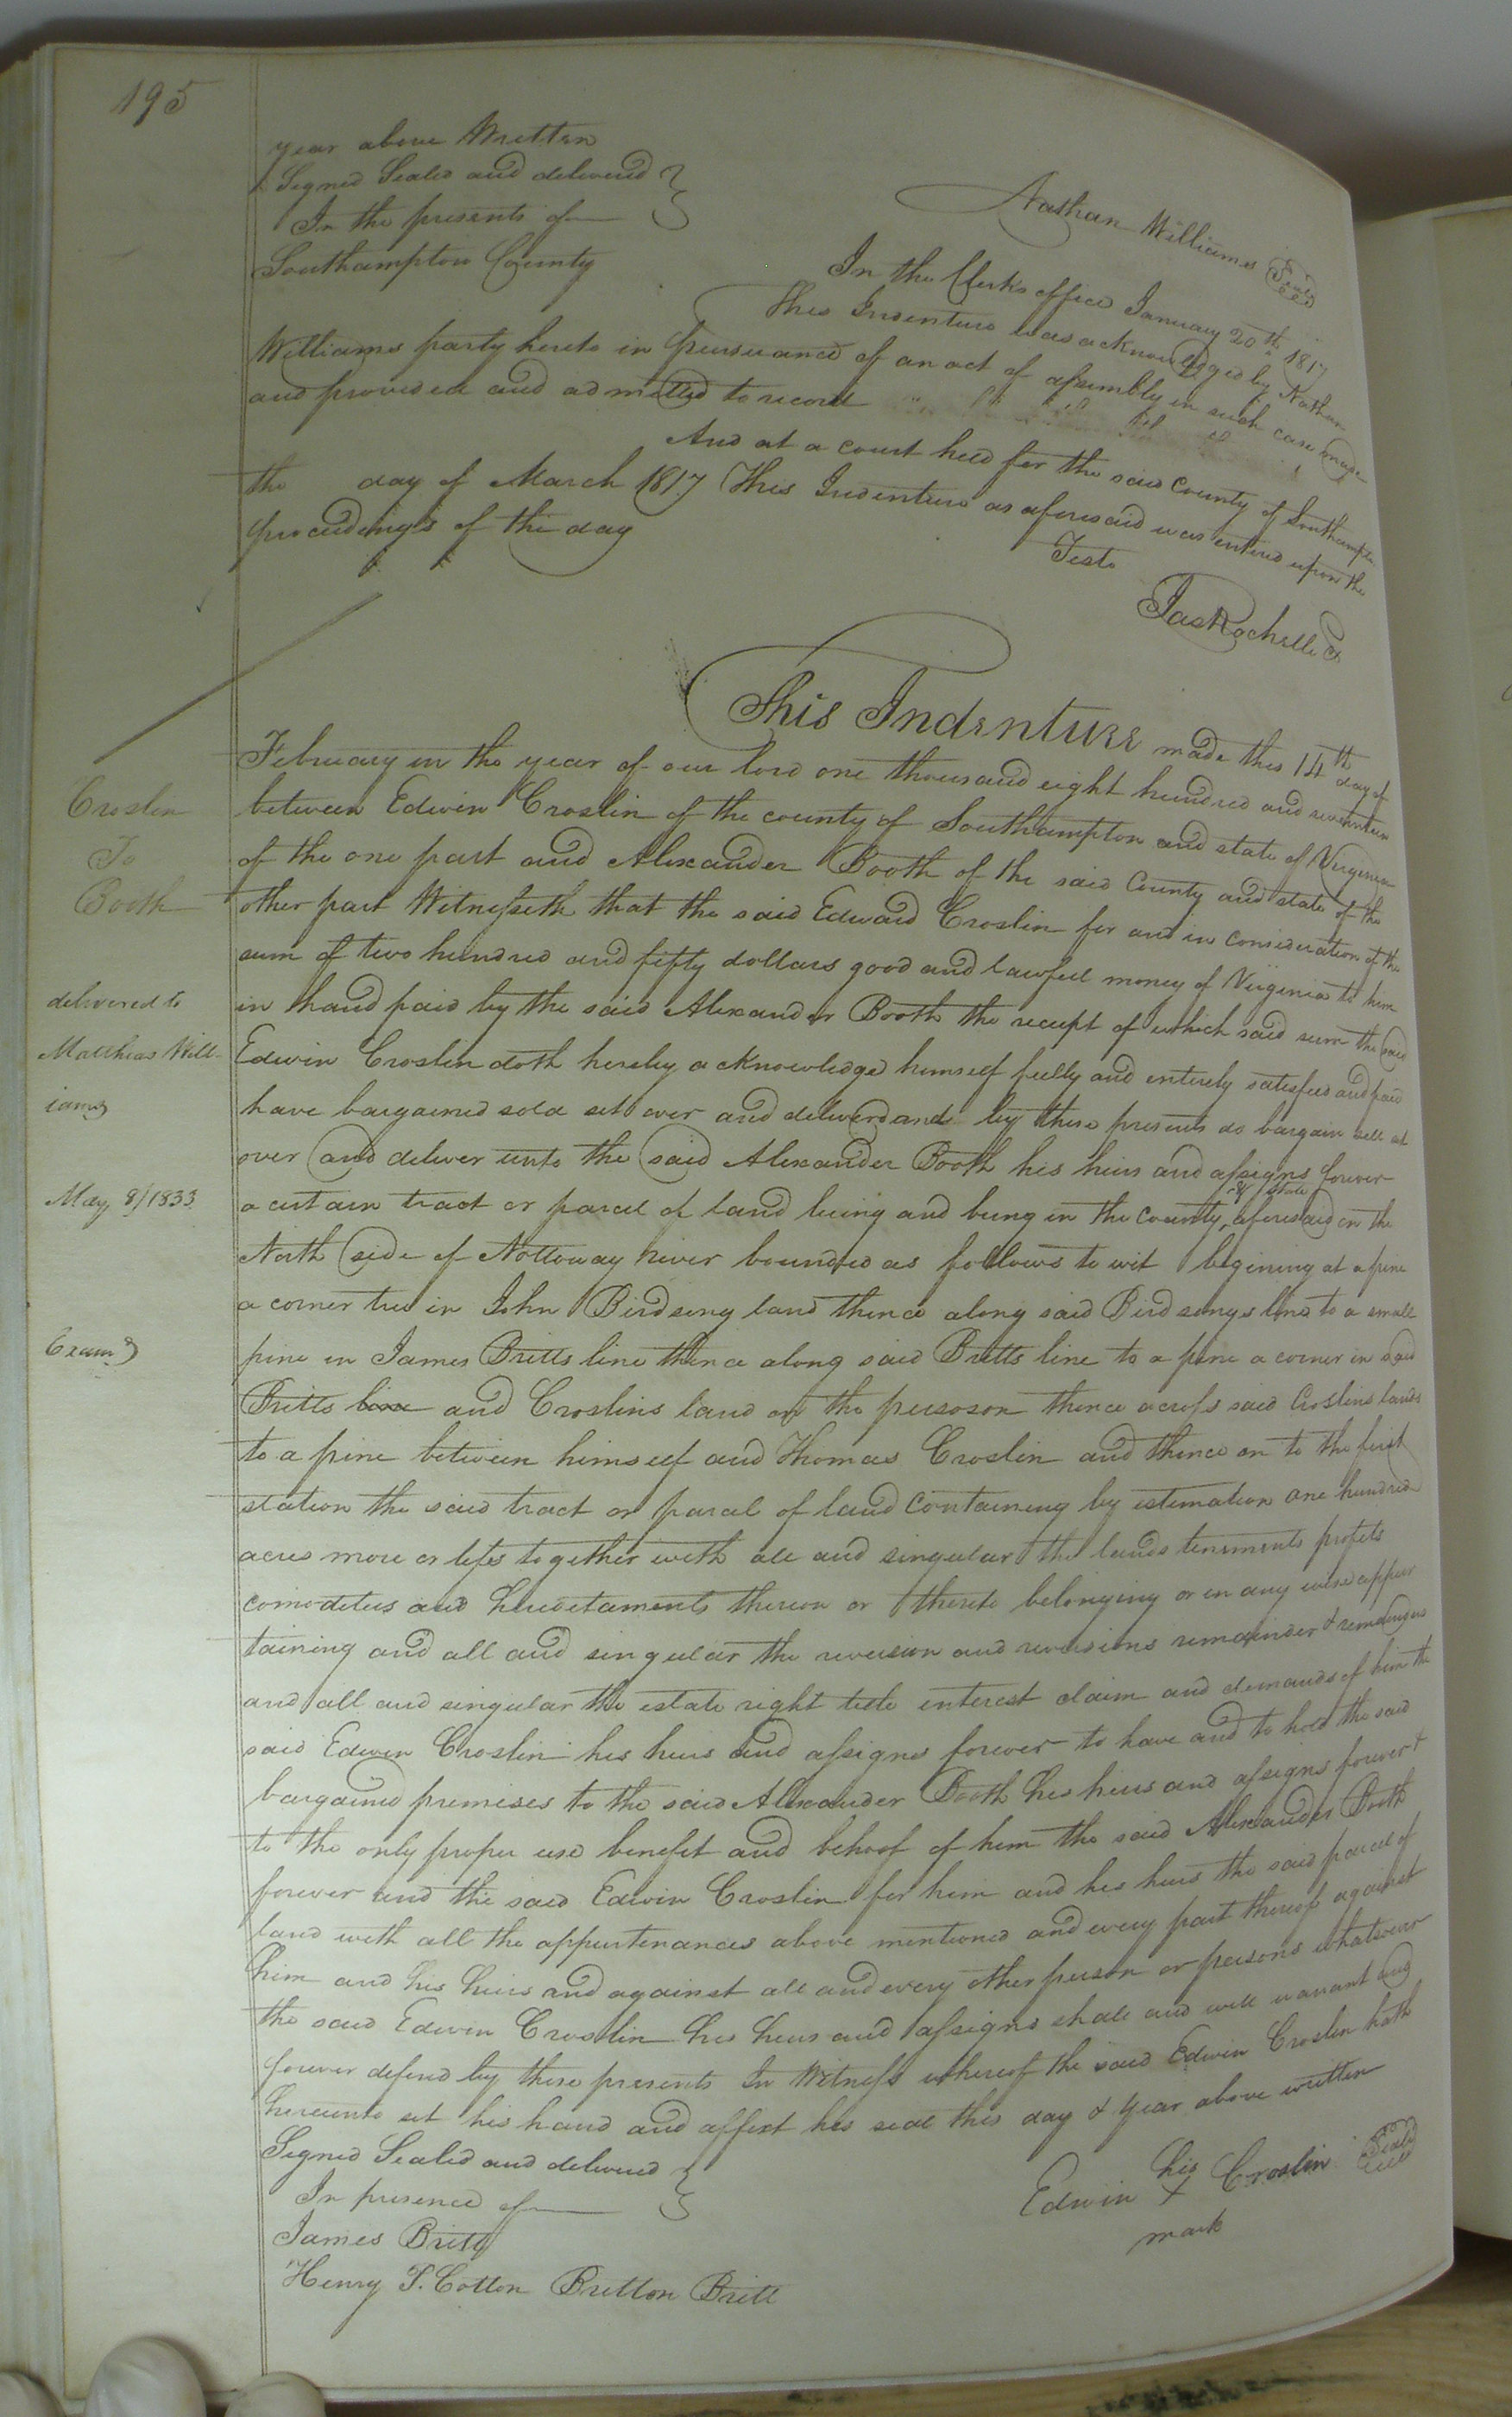 195
year above Written
Signed Sealed and delivered
In the presents of
Southampton County
Nathan Williams Seal
In the Clerks office January 20th 1817
This Indenture was acknowledged by Nathan
Williams party hereto in persuance of an act of assembly in such case made
and provided and admitted to record
And at a court held for the said County of Southampton
the day of March 1817 This Indenture as aforesaid was entered upon the
proceedings of the day
Teste
Jas Rochelle C
This Indenture made this 14th day of
February in the year of our lord one thousand eight hundred and seventeen
between Edwin Croslin of the county of Southampton and state of Virginia
of the one part and Alexander Booth of the said County and state of the
other part Witnesseth that the said Edward Croslin for and in consideration of the
sum of two hundred and fifty dollars good and lawfull money of Virginia to him
in hand paid by the said Alexander Booth the receipt of which said sum the said
Edwin Croslin doth hereby acknowledge himself fully and entirely satisfied and paid
have bargained sold set over and deliverd and by these presents do bargain sell set
over and deliver unto the said Alexander Booth his heirs and assigns forever
a certain tract or parcel of land lieing and being in the county & state aforesaid on the
North side of Nottoway river bounded as follows to wit begining at a pine
a corner tree in John Birdsong land thence along said Birdsongs line to a small
pine in James Britts line thence along said Britts line to a pine a corner in said
Britts line and Croslins land on the persoson thence across said Croslins lands
to a pine between himself and Thomas Croslin and thence on to the first
station the said tract or parcel of land containing by estimation one hundred
acres more or less together with all and singular the lands tenements profits
comodities and hereditaments thereon or thereto belonging or in any wise apper
taining and all and singular the reversion and reversions remainder & remainders
and all and singular the estate right title interest claim and demands of him the
said Edwin Croslin his heirs and assigns forever to have and to hold the said
bargained premises to the said Alexander Booth his heirs and assigns forever &
to the only proper use benefit and behoof of him the said Alexander Booth
forever and the said Edwin Croslin for him and his heirs the said parcel of
land with all the appurtenances above mentioned and every part thereof against
him and his heirs and against all and every other person or persons whatsoever
the said Edwin Croslin his heirs and assigns shall and will warrant and
forever defend by these presents In Witness whereof the said Edwin Croslin hath
hereunto set his hand and affixt his seal this day & year above written
Signed Sealed and delivered
In presence of
James Britt
Henry P. Cotton Britton Britt
his
Edwin X Croslin Seal
mark
Croslin
To
Booth
delivered to
Matthias Will-
iams
May 8/1833
Examd